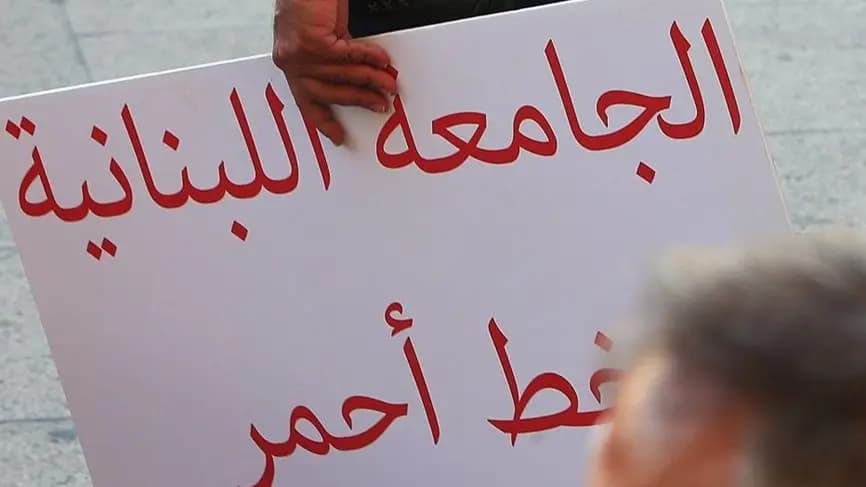 الجامعة اللبنانية
أحمر